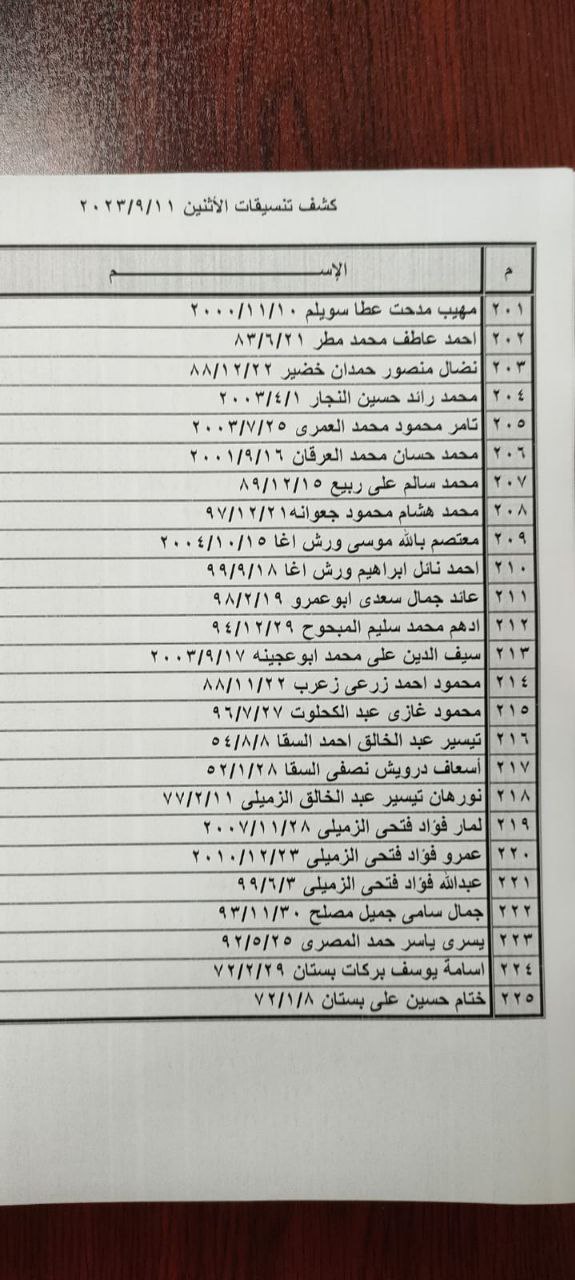 كشف تنسيقات الأثنين ٢٠٢٣/٩/١١
م الإســـــــــــــــــم
٢٠١ مهيب مدحت عطا سويلم ٢٠٠٠/١١/١٠
٢٠٢ احمد عاطف محمد مطر ٨٣/٦/٢١
٢٠٣ نضال منصور حمدان خضير ٨٨/١٢/٢٢
٢٠٤ محمد رائد حسين النجار ٢٠٠٣/٤/١
٢٠٥ تامر محمود محمد العمرى ٢٠٠٣/٧/٢٥
٢٠٦ محمد حسان محمد العرقان ٢٠٠١/٩/١٦
٢٠٧ محمد سالم على ربيع ٨٩/١٢/١٥
٢٠٨ محمد هشام محمود جعوانه٩٧/١٢/٢١
٢٠٩ معتصم بالله موسى ورش اغا ٢٠٠٤/١٠/١٥
٢١٠ احمد نائل ابراهيم ورش اغا ٩٩/٩/١٨
٢١١ عائد جمال سعدى ابوعمرو ٩٨/٢/١٩
٢١٢ ادهم محمد سليم المبحوح ٩٤/١٢/٢٩
٢١٣ سيف الدين على محمد ابوعجينه ٢٠٠٣/٩/١٧
٢١٤ محمود احمد زرعى زعرب ٨٨/١١/٢٢
٢١٥ محمود غازى عبد الكحلوت ٩٦/٧/٢٧
٢١٦ تيسير عبد الخالق احمد السقا ٥٤/٨/٨
٢١٧ أسعاف درويش نصفى السقا ٥٢/١/٢٨
٢١٨ نورهان تيسير عبد الخالق الزميلى ٧٧/٢/١١
٢١٩ لمار فؤاد فتحى الزميلى ٢٠٠٧/١١/٢٨
٢٢٠ عمرو فؤاد فتحى الزميلى ٢٠١٠/١٢/٢٣
٢٢١ عبدالله فؤاد فتحى الزميلى ٩٩/٦/٣
٢٢٢ جمال سامى جميل مصلح ٩٣/١١/٣٠
٢٢٣ يسرى ياسر حمد المصرى ٩٢/٥/٢٥
٢٢٤ اسامة يوسف بركات بستان ٧٢/٢/٢٩
٢٢٥ ختام حسين على بستان ٧٢/١/٨